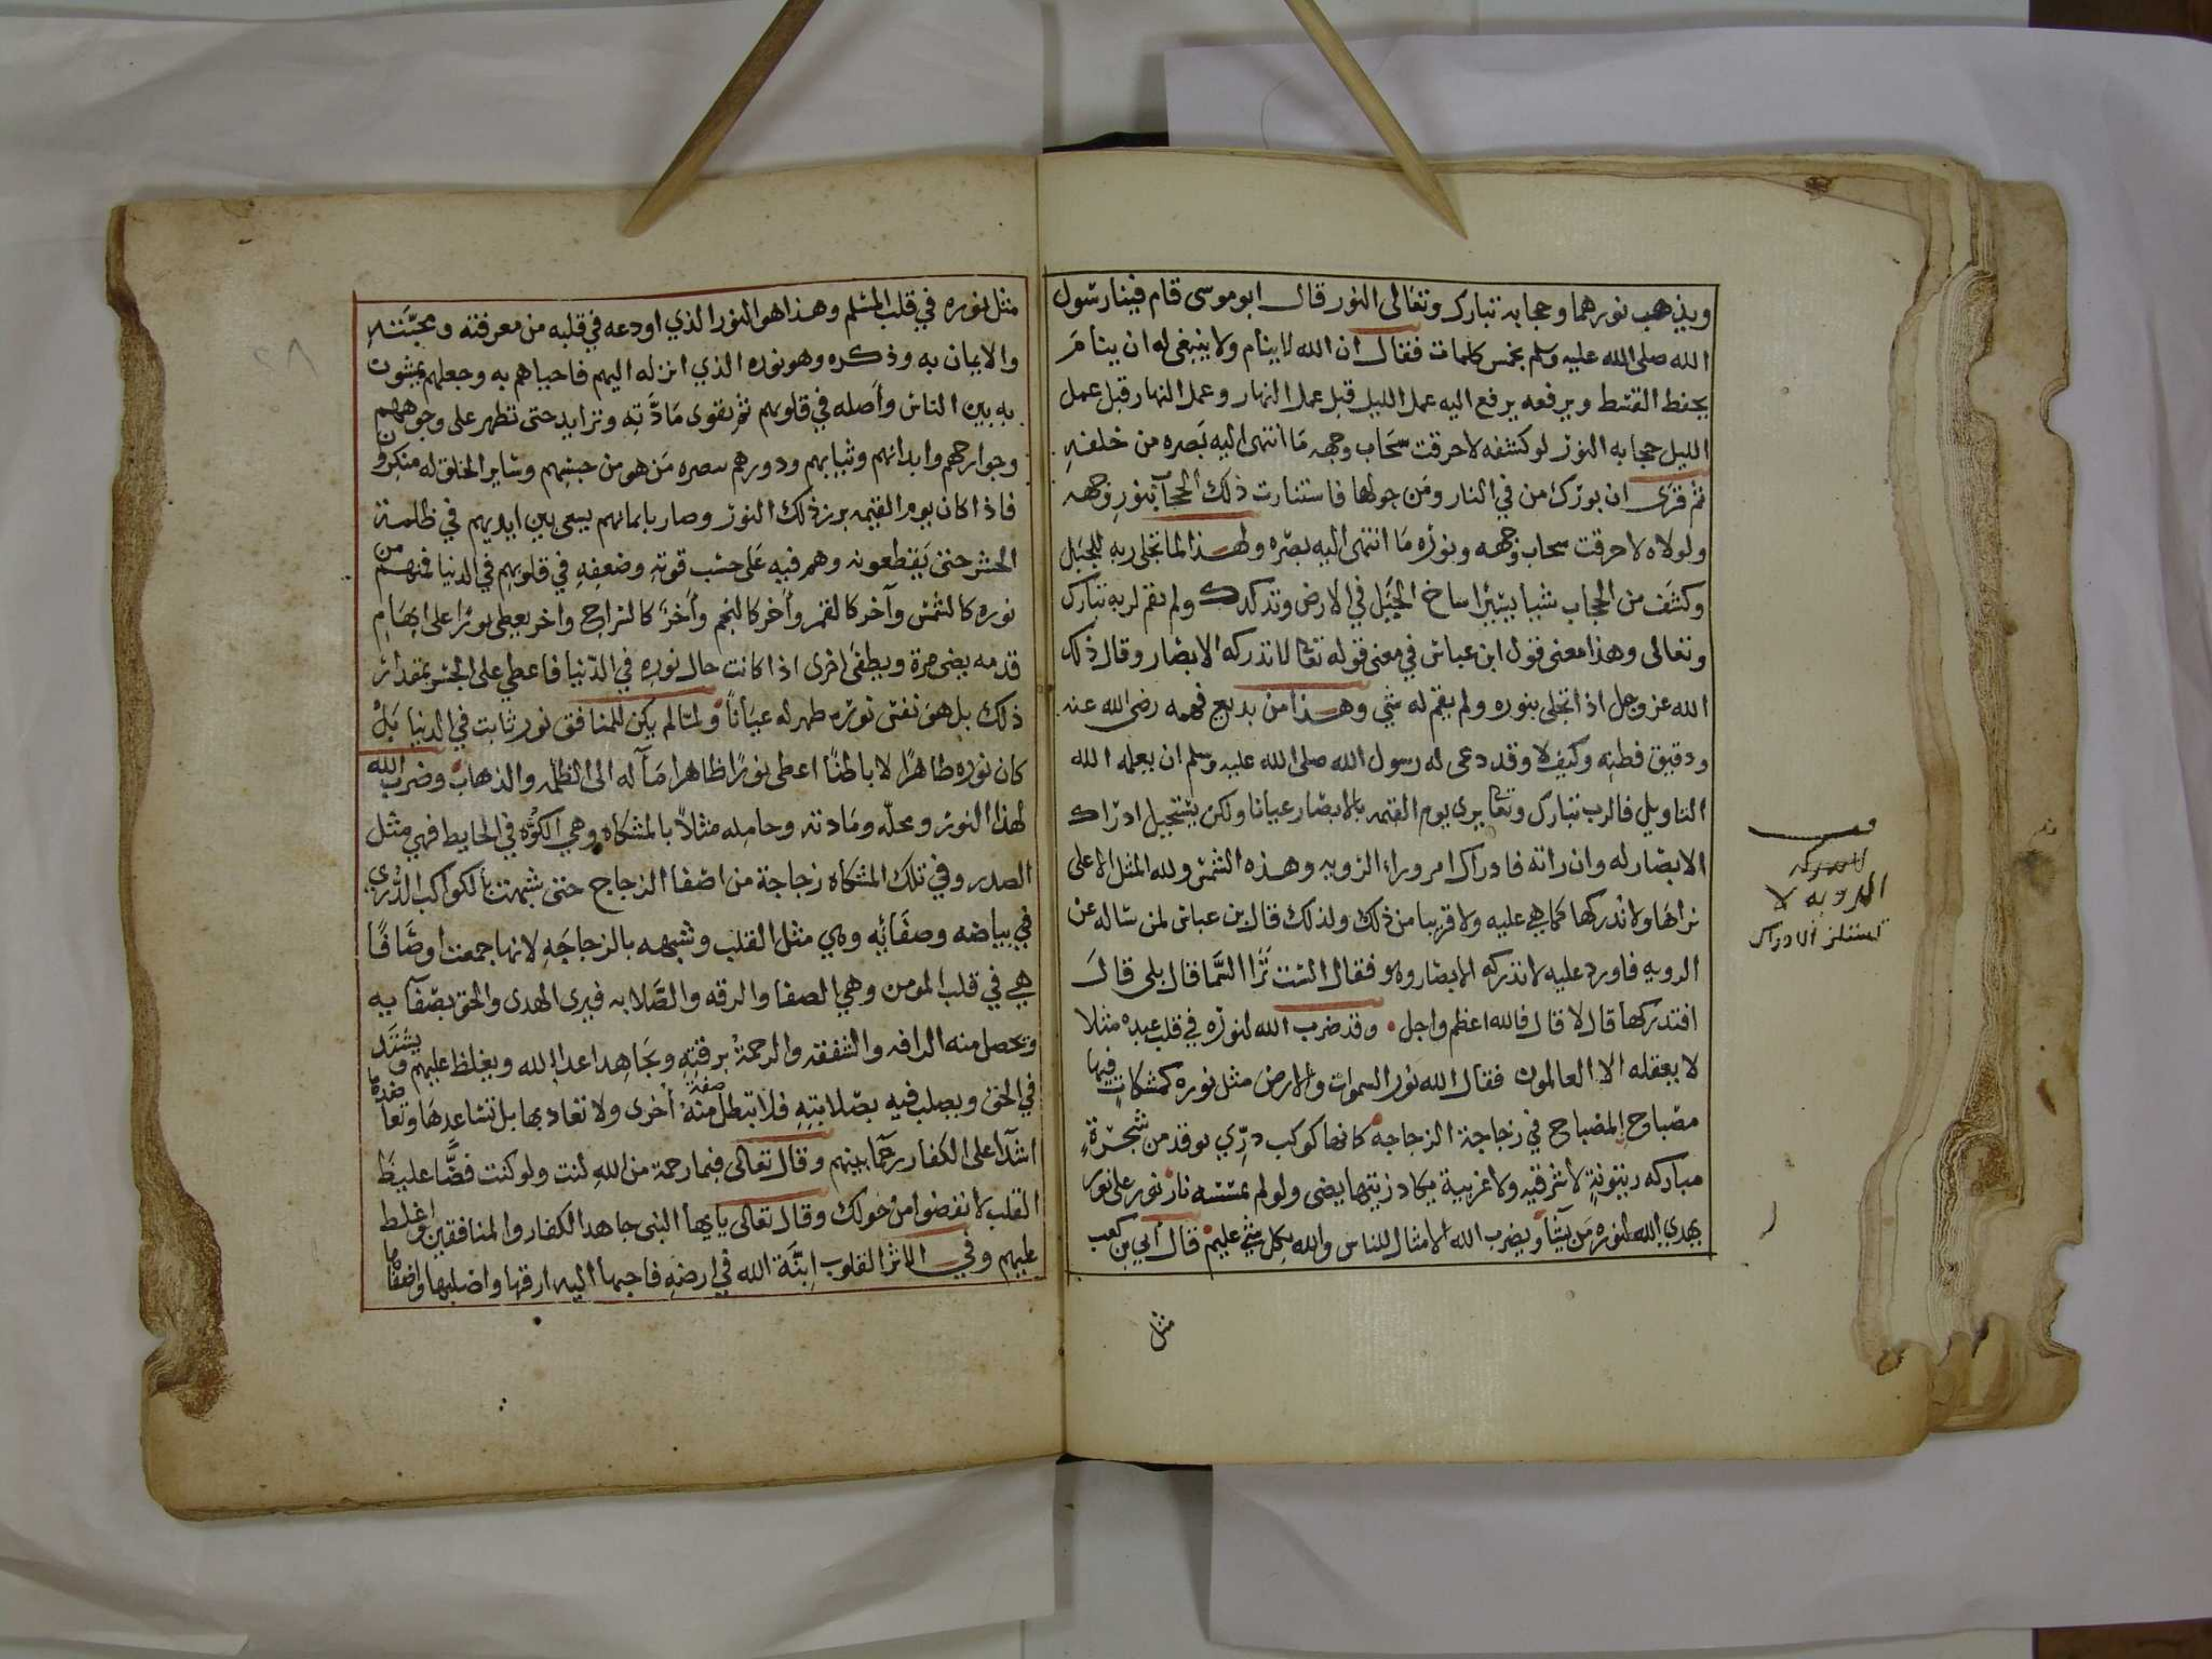 ويذهب نورهما وحجابه تبارك وتعالى النور قال ابو موسى قام فينا رسول
الله صلى الله عليه وسلم بخمس كلمات فقال ان الله لا ينام ولا ينبغي له ان ينام
يخفط القسط ويرفعه يرفع اليه عمل الليل قبل عمل النهار وعمل النهار قبل عمل
الليل حجابه النور لو كشفه لاحرقت سحاب وجهه ما انتهى اليه بصره من خلقه
ثم قرى ان بورك من في النار ومن حولها فاستنارت ذلك الحجاب بنور وجهه
ولولاه لاحرقت سحاب وجهه ونوره ما انتهى اليه بصره ولهذا لما تجلى ربه للجبل
وكشف من الحجاب شيا يسيرا ساخ الجبل في الارض وتدكدك ولم يقم لربه تبارك
وتعالى وهذا معنى قول ابن عباس في معنى قوله تعا لا تدركه الابصار وقال ذلك
الله عز وجل اذا تجلى بنوره ولم يقم له شي وهذا من بديع فهمه رضي الله عنه
ودقيق فطنه وكيف لا وقد دعى له رسول الله صلى الله عليه وسلم ان يعلمه الله
التاويل فالرب تبارك وتعا يرى يوم القيمه بالابصار عيانا ولكن يستحيل ادراك
الابصار له وان راته فادراك امر وراء الرويه وهذه الشمس ولله المثل الاعلى
نراها ولا ندركها كما هي عليه ولا قريبا من ذلك ولذلك قال بن عباس لمن ساله عن
الرويه فاورد عليه لا تدركه الابصار وهو فقال الست ترا السما قال بلى قال
افتدركها قال لا قال فالله اعظم واجل وقد ضرب الله لنوره في قلب عبده مثلا
لا يعقله الا العالمون فقال الله نور السموات والارض مثل نوره كمشكات فيها
مصباح المصباح في زجاجة الزجاجه كانها كوكب دري توقد من شجرة
مباركه زيتونة لا شرقيه ولا غربية يكاد زيتها يضى ولو لم تمسسه نار نور على نور
يهدي الله لنوره من يشا ويضرب الله الامثال للناس والله بكل شي عليم قال ابي بن كعب
مثل
الرويه لا
تستلزم الادراك
مثل نوره في قلب المسلم وهذا هو النور الذي اودعه في قلبه من معرفته ومحبته
والايمان به وذكره وهو نوره الذي انزله اليهم فاحياهم به وجعلهم يمشون
به بين الناس واصله في قلوبهم ثم يقوى مادته وتزايد حتى تظهر على وجوههم
وجوارحهم وابدانهم وثيابهم ودورهم يبصره من هو من جنسهم وساير الخلق له منكرون
فاذا كان يوم القيمه برز ذلك النور وصار بايمانهم يسعى بين ايديهم في ظلمة
الجسر حتى يقطعونه وهم فيه على حسب قوته وضعفه في قلوبهم في الدنيا فمنهم من
نوره كالشمس وآخر كالقمر وأخر كالنجم وأخر كالسراج واخر يعطى نورا على ابهام
قدمه يضى مرة ويطفى اخرى اذا كانت حال نوره في الدنيا فاعطي على الجسر بمقدار
ذلك بل هو نفس نوره ظهر له عيانا ولما لم يكن للمنافق نور ثابت في الدنيا بل
كان نوره ظاهرا لا باطنا اعطى نورا ظاهرا مآله الى الظلمه والذهاب وضرب الله
لهذا النور ومحله ومادته وحامله مثلا بالمشكاه وهي الكوه في الحايط فهي مثل
الصدر وفي تلك المشكاه زجاجة من اصفا الزجاج حتى شبهت بالكواكب الدري
في بياضه وصفائه وهي مثل القلب وتشبهه بالزجاجه لانها جمعت اوصافا
هي في قلب المومن وهي الصفا والرقه والصلابه فيرى الهدى والحق بصفآيه
وتحصل منه الرافه والشفقه والرحمة برقته ويجاهد اعدا الله ويغلظ عليهم ويشتد
في الحق ويصلب فيه بصلابته فلا تبطل صفة منه أخرى ولا تعاد بها بل تساعدها وتعاضدها
اشدآ على الكفار رحما بينهم وقال تعالى فبما رحمة من الله لنت ولو كنت فضا غليظ
القلب لانفضوا من حولك وقال تعالى يايها النبى جاهد الكفار والمنافقين واغلط
عليهم وفي الاثر القلوب انية الله في ارضه فاحبها اليه ارقها واصلبها واصفاها